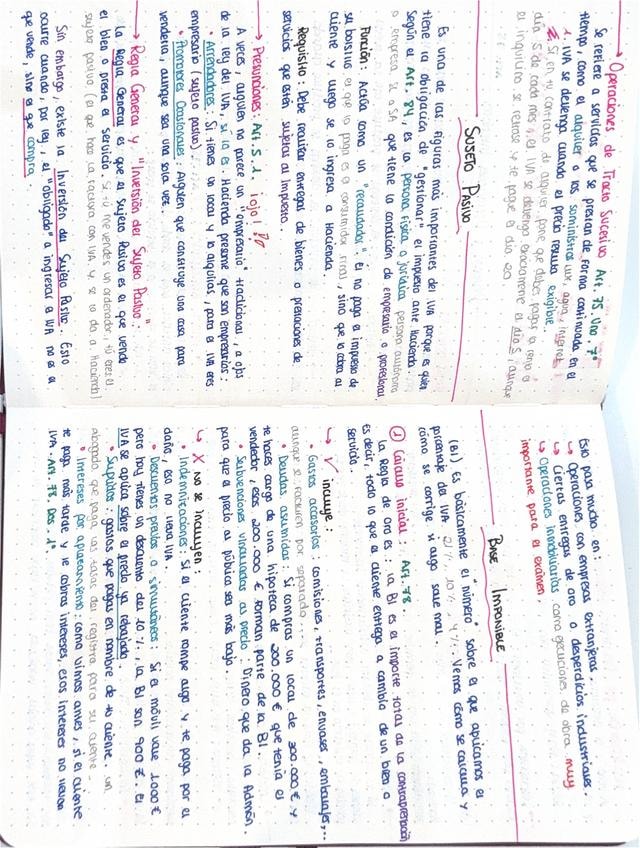 → Operaciones de Tracto Sucesivo Art. 75. Uno. 7º
Se refiere a servicios que se prestan de forma continuada en el
tiempo, como el alquiler o los suministros luz, agua, internet
1. IVA se devenga cuando el precio resulta exigible.
Si en tu contrato de alquiler pone que debes pagar la renta el
día 5 de cada mes → el IVA se devenga exactamente el día 5, aunque
el inquilino se retrase y te pague el día 20
SUJETO PASIVO
Es una de las figuras más importantes del IVA porque es quien
tiene la obligación de "gestionar" el impuesto ante Hacienda.
Según el Art. 84, es la persona física o jurídica persona autónoma
o empresa SL o SA que tiene la condición de empresario o profesional
Función: Actúa como un "recaudador". Él no paga el impuesto de
su bolsillo el que lo paga es el consumidor final, sino que lo cobra al
cliente y luego se lo ingresa a Hacienda.
Requisito: Debe realizar entregas de bienes o prestaciones de
servicios que estén sujetas al impuesto.
→ Presunciones: Art. 5. 1. ¡ojo!
A veces, alguien no parece un "empresario" tradicional, a ojos
de la ley del IVA, sí lo es Hacienda presume que son empresarios:
• Arrendadores: Si tienes un local y lo alquilas, para el IVA eres
empresario (sujeto pasivo).
• Promotores Ocasionales: Alguien que construye una casa para
venderla, aunque sea una sola vez.
→ Regla General y "Inversión del Sujeto Pasivo":
La Regla General es que el Sujeto Pasivo es el que vende
el bien o presta el servicio. Si tú me vendes un ordenador, tú eres el
sujeto pasivo (el que hace la factura con IVA y se lo da a Hacienda)
Sin embargo, existe la Inversión del Sujeto Pasivo. Esto
ocurre cuando por ley, el "obligado" a ingresar el IVA no es el
que vende, sino el que compra.
Esto pasa mucho en:
↳ Operaciones con empresas extranjeras.
↳ Ciertas entregas de oro o desperdicios industriales.
↳ Operaciones inmobiliarias como ejecuciones de obra muy
importante para el examen.
BASE IMPONIBLE
(BI) Es básicamente el "número" sobre el que aplicamos el
porcentaje del IVA 21%, 10%, 4%. Vemos cómo se calcula y
cómo se corrige si algo sale mal.
① Cálculo inicial: Art. 78.
La Regla de Oro es: la BI es el importe total de la contraprestación
es decir, todo lo que el cliente entrega a cambio de un bien o
servicio.
↳ ✓ incluye:
• Gastos accesorios: comisiones, transportes, envases, embalajes,...
aunque se facturen por separado.
• Deudas asumidas: Si compras un local de 300.000 € y
te haces cargo de una hipoteca de 200.000 € que tenía el
vendedor, esos 200.000 € forman parte de la BI.
• Subvenciones vinculadas al precio: Dinero que da la Admón.
para que el precio al público sea más bajo.
↳ X No se incluyen:
• Indemnizaciones: Si el cliente rompe algo y te paga por el
daño, eso no lleva IVA
• Descuentos previos o simultáneos: Si el móvil vale 1000 €
pero hoy tienes un descuento del 10%, la BI son 900 €. El
IVA se aplica sobre el precio ya rebajado.
• Suplidos: gastos que pagas en nombre de tu cliente. Un
abogado que paga las tasas del registro para su cliente.
• Intereses por aplazamiento: como vimos antes, si el cliente
te paga más tarde y le cobras intereses, esos intereses no llevan
IVA. Art. 78. Dos. 1º.